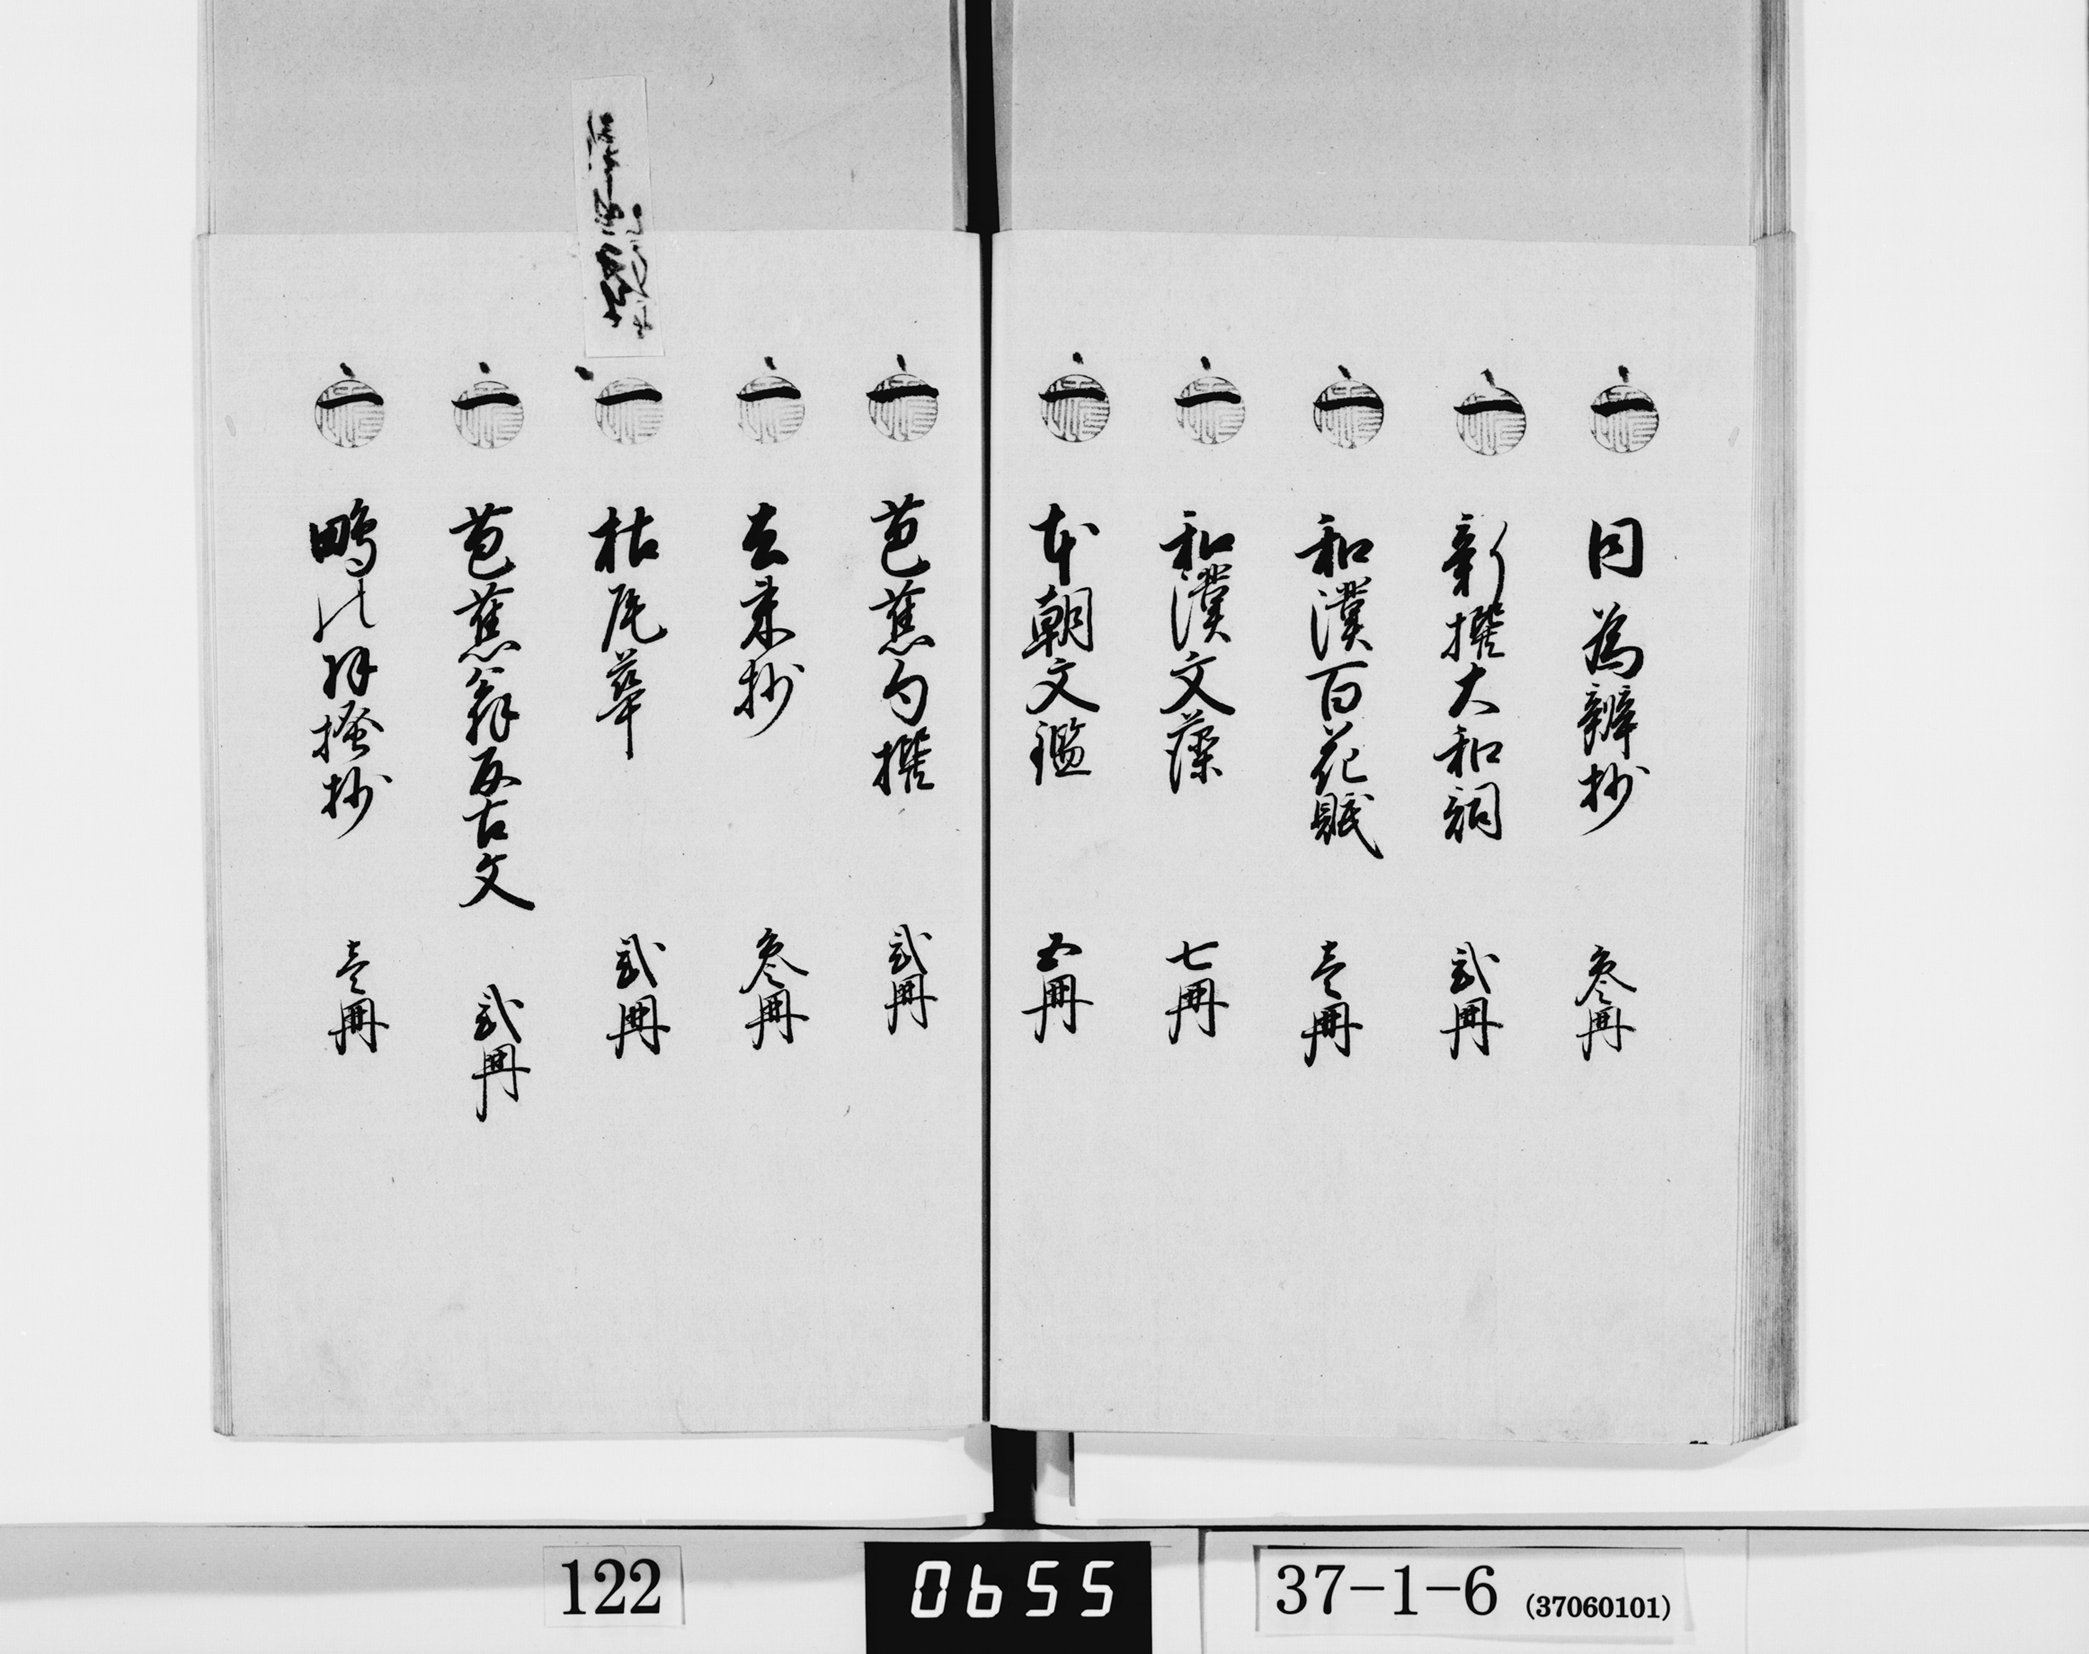 一 同為辨抄 参冊
一 新撰大和詞 弐冊
一 和漢百花賦 壱冊
一 和漢文藻 七冊
一 本朝文鑑 五冊
一 芭蕉句撰 弐冊
一 去来抄 参冊
一 枯尾華 弐冊
一 芭蕉翁反古文 弐冊
一 鵙の求抄 壱冊
122
0655
37-1-6 (37060101)